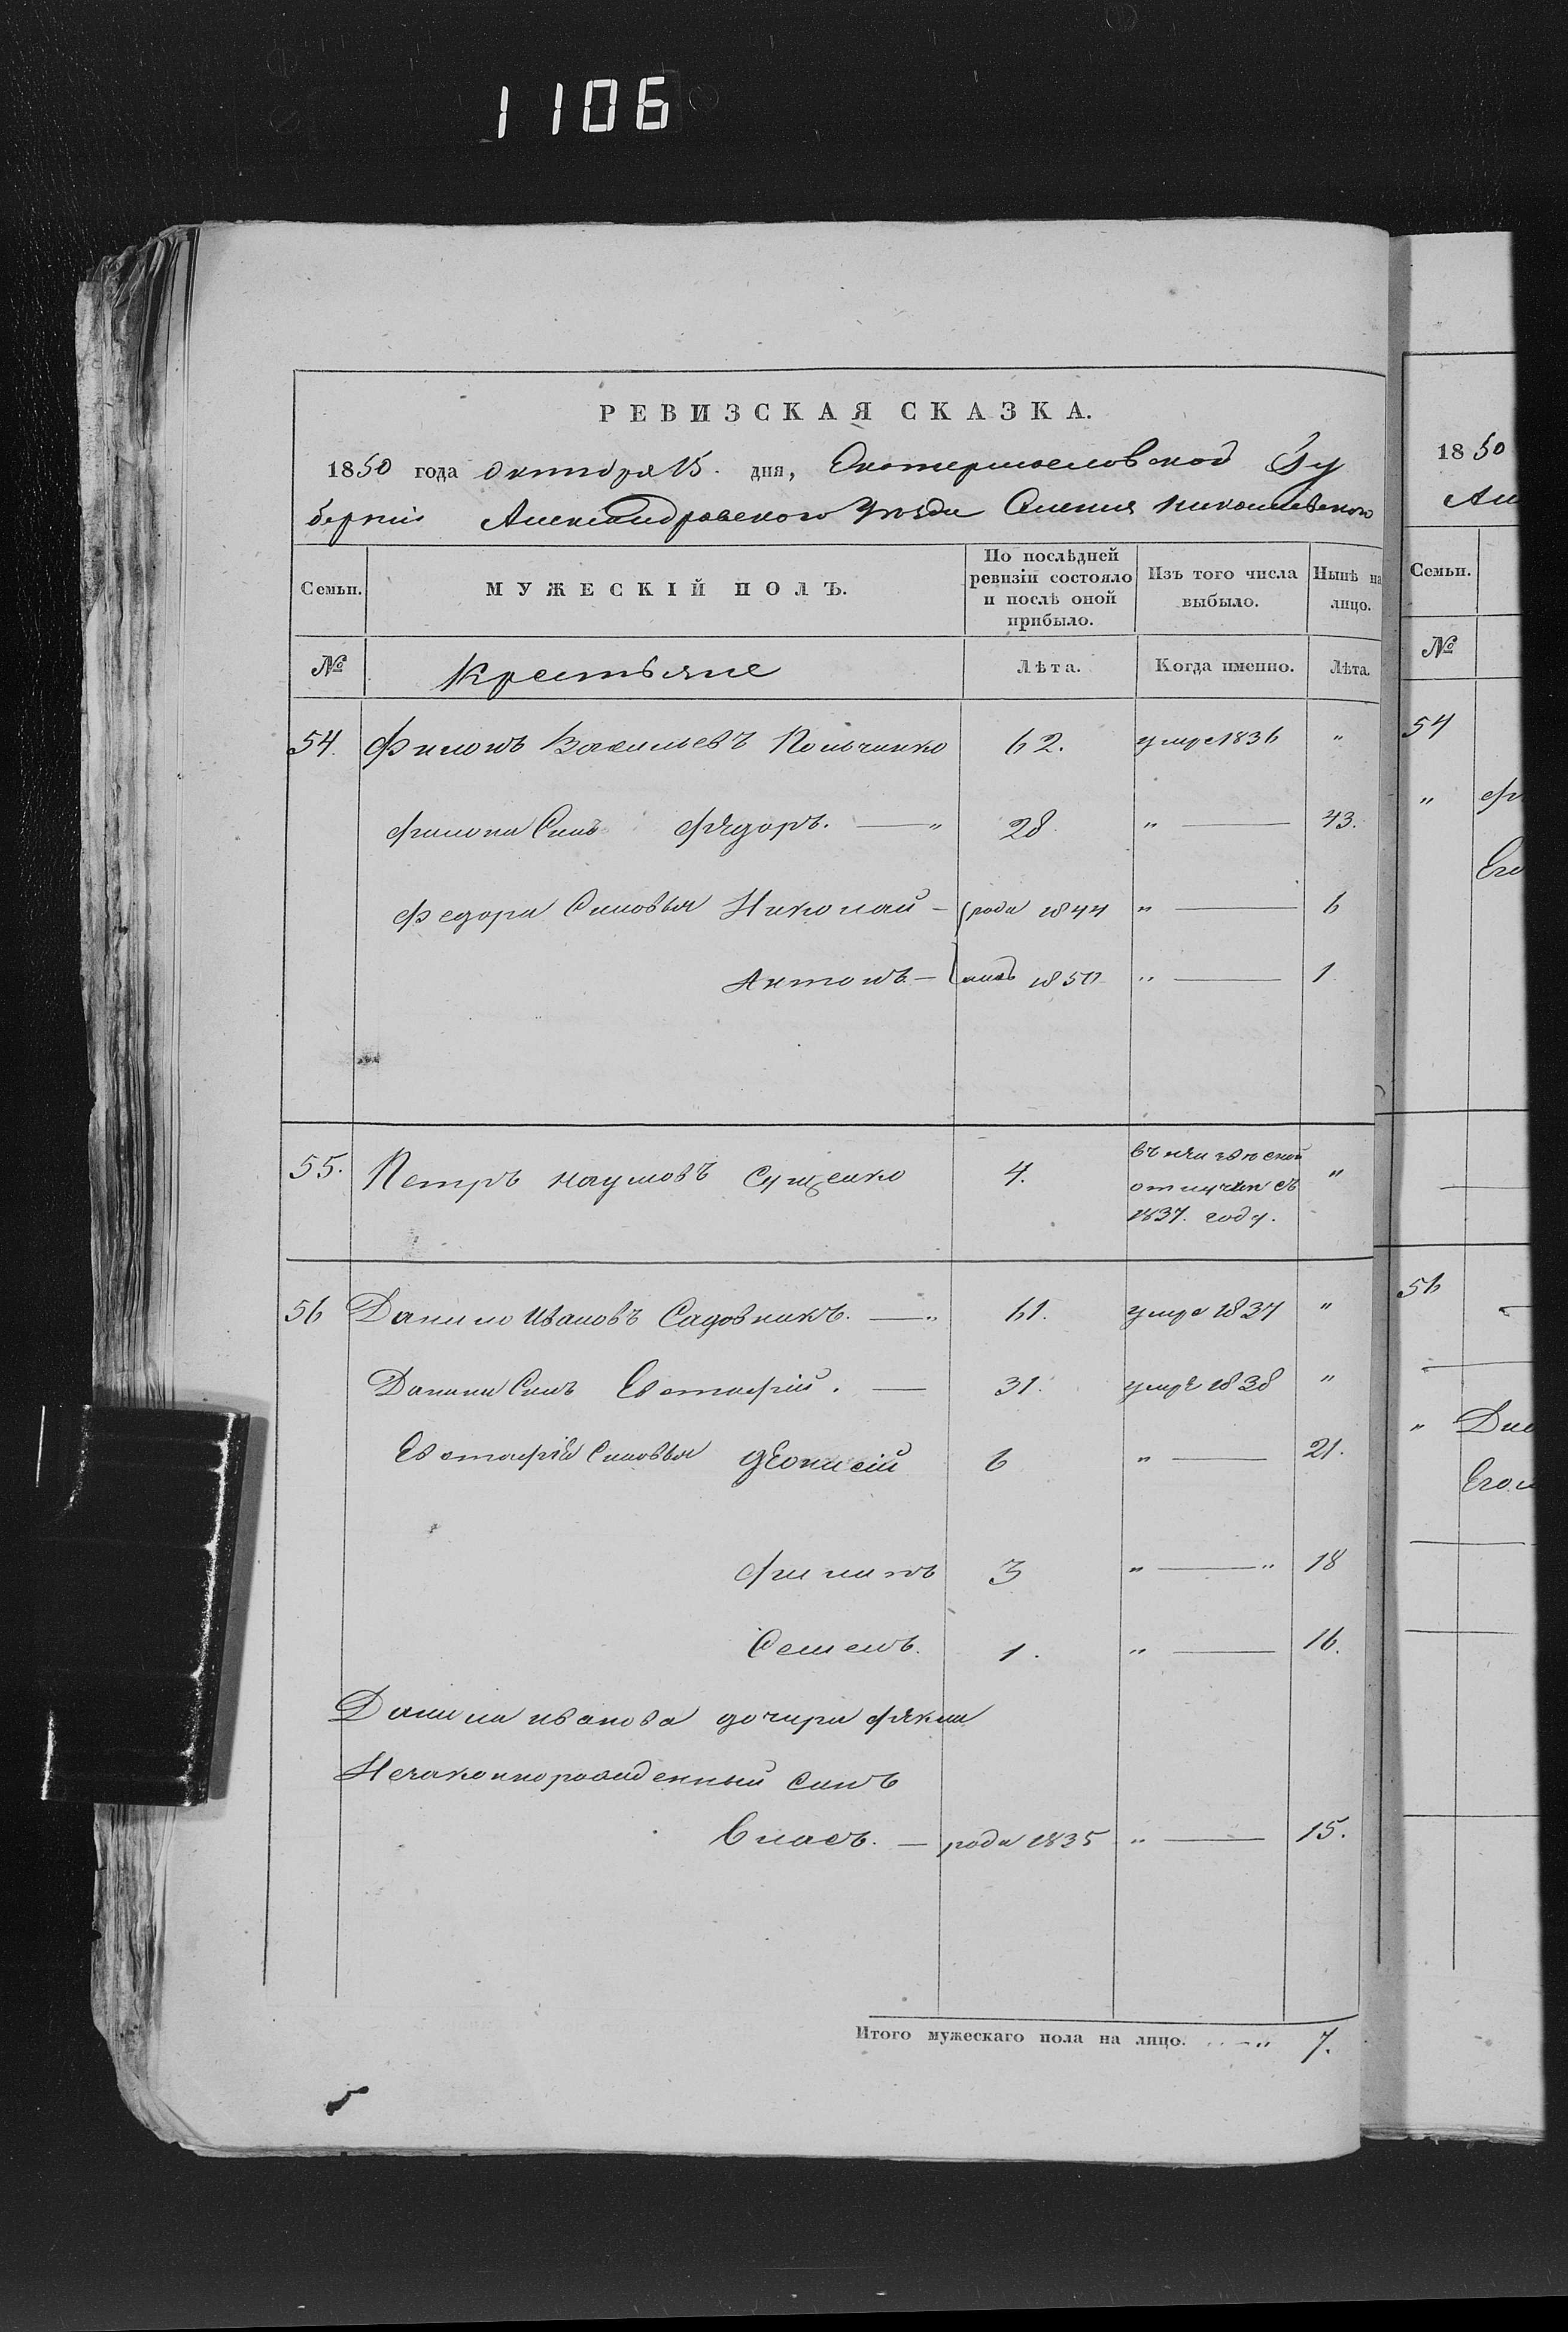 1106
РЕВИЗСКАЯ СКАЗКА.
1850 года октября 15. дня, Екатеринославской Гу
берніи Александровскаго уѣзда Имения Николаевского
Семьи. МУЖЕСКІЙ ПОЛЪ. По послѣдней ревизіи состояло и послѣ оной прибыло. Изъ того числа выбыло. Нынѣ на лицо.
№ Крестьяне Лѣта. Когда именно. Лѣта.
54. Филонъ Васильевъ 62. умре 1836 "
Филона Синъ Фядоръ. — " 28 " — 43.
Федора Синовья Николай — рода 1844 " — 6
Антонъ — 1850 " — 1
55. Петръ Наумовъ Сущенко 4. въ
отлучки съ "
1837. году.
56 Данило Ивановъ Садовникъ. — " 61. умре 1837 "
Данила Синъ Евстафій. — 31. умре 1838 "
Евстафія Синовья Деонисій 6 " — 21.
Филипъ 3 " — " 18
Семенъ. 1. " — 16.
Данила Иванова дочери Фякли
Незаконнорожденный синъ
Власъ. — рода 1835 " — 15.
Итого мужескаго пола на лицо. — " 7.
1850
Семьи.
№
54
"
Его
56
"